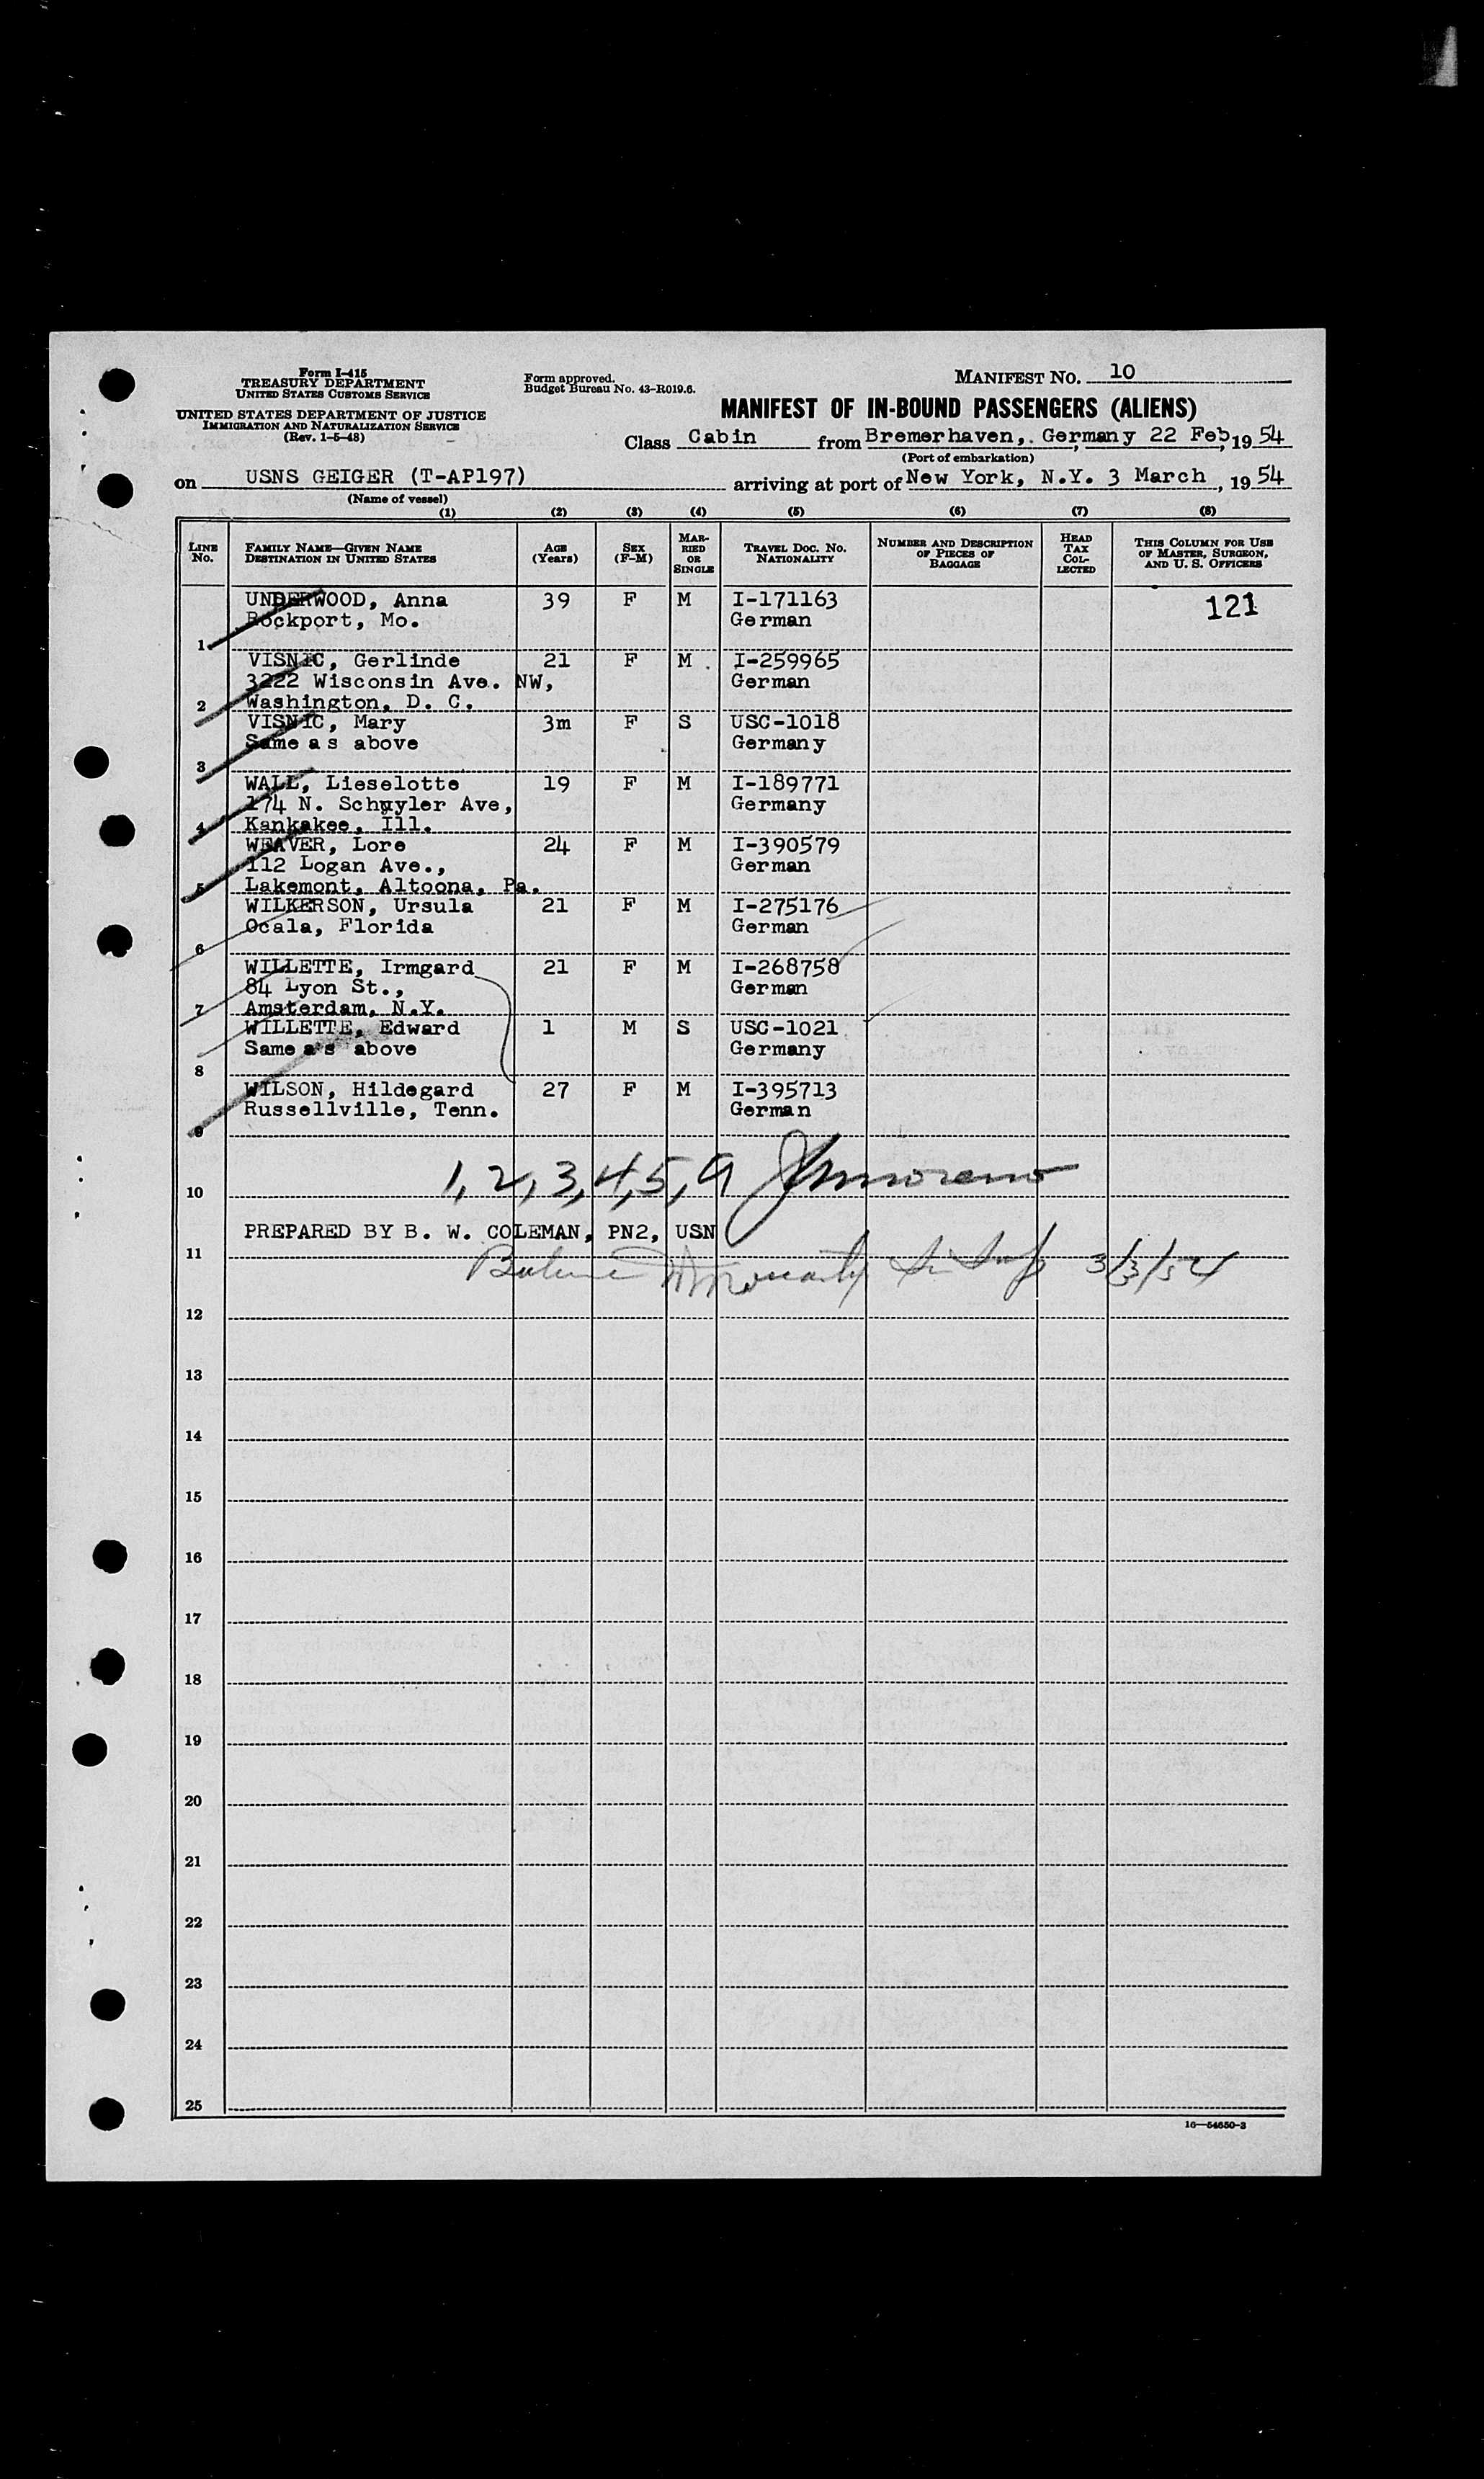 Form I-415
TREASURY DEPARTMENT
UNITED STATES CUSTOMS SERVICE
UNITED STATES DEPARTMENT OF JUSTICE
IMMIGRATION AND NATURALIZATION SERVICE
(Rev. 1-5-48)
Form approved.
Budget Bureau No. 43-R019.6.
MANIFEST NO. 10
MANIFEST OF IN-BOUND PASSENGERS (ALIENS)
Class Cabin from Bremerhaven, Germany 22 Feb, 1954
(Port of embarkation)
on USNS GEIGER (T-AP197) arriving at port of New York, N.Y. 3 March, 1954
(Name of vessel)
(1) (2) (3) (4) (5) (6) (7) (8)
LINE No.
FAMILY NAME—GIVEN NAME
DESTINATION IN UNITED STATES
AGE (Years)
SEX (F-M)
MARRIED OR SINGLE
TRAVEL DOC. NO.
NATIONALITY
NUMBER AND DESCRIPTION OF PIECES OF BAGGAGE
HEAD TAX COLLECTED
THIS COLUMN FOR USE OF MASTER, SURGEON, AND U. S. OFFICERS
UNDERWOOD, Anna 39 F M I-171163 121
Rockport, Mo. German
1
VISNIC, Gerlinde 21 F M I-259965
3222 Wisconsin Ave. NW, German
2 Washington, D. C.
VISNIC, Mary 3m F S USC-1018
Same as above Germany
3
WALL, Lieselotte 19 F M I-189771
174 N. Schuyler Ave, Germany
4 Kankakee, Ill.
WEAVER, Lore 24 F M I-390579
112 Logan Ave., German
5 Lakemont, Altoona, Pa.
WILKERSON, Ursula 21 F M I-275176
Ocala, Florida German
6
WILLETTE, Irmgard 21 F M I-268758
84 Lyon St., German
7 Amsterdam, N.Y.
WILLETTE, Edward 1 M S USC-1021
Same as above Germany
8
WILSON, Hildegard 27 F M I-395713
Russellville, Tenn. German
9
1, 2, 3, 4, 5, 9
10
PREPARED BY B. W. COLEMAN, PN2, USN
11
3/3/54
12
13
14
15
16
17
18
19
20
21
22
23
24
25
16—54650-3